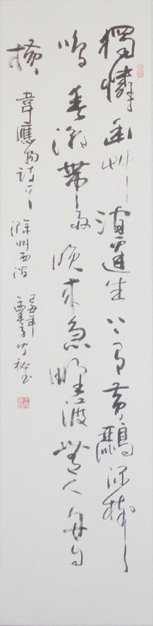 獨憐幽艸澗邊生上有黃鸝深樹
鳴春潮帶雨晚來急野渡無人舟自
橫 韋應物詩 滁州西澗